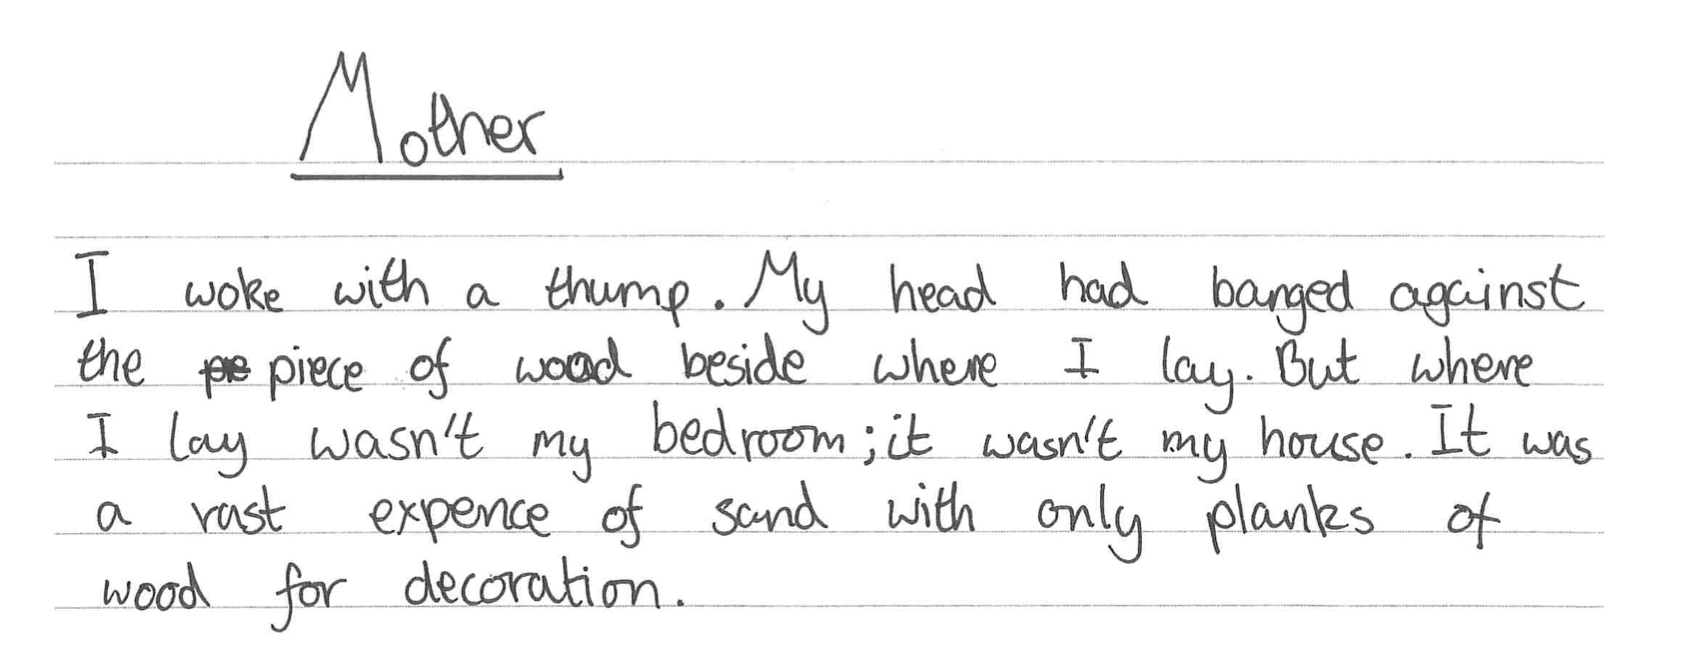 Mother
I woke with a thump. My head had banged against
the pe piece of wood beside where I lay. But where
I lay wasn't my bedroom; it wasn't my house. It was
a vast expence of sand with only planks of
wood for decoration.